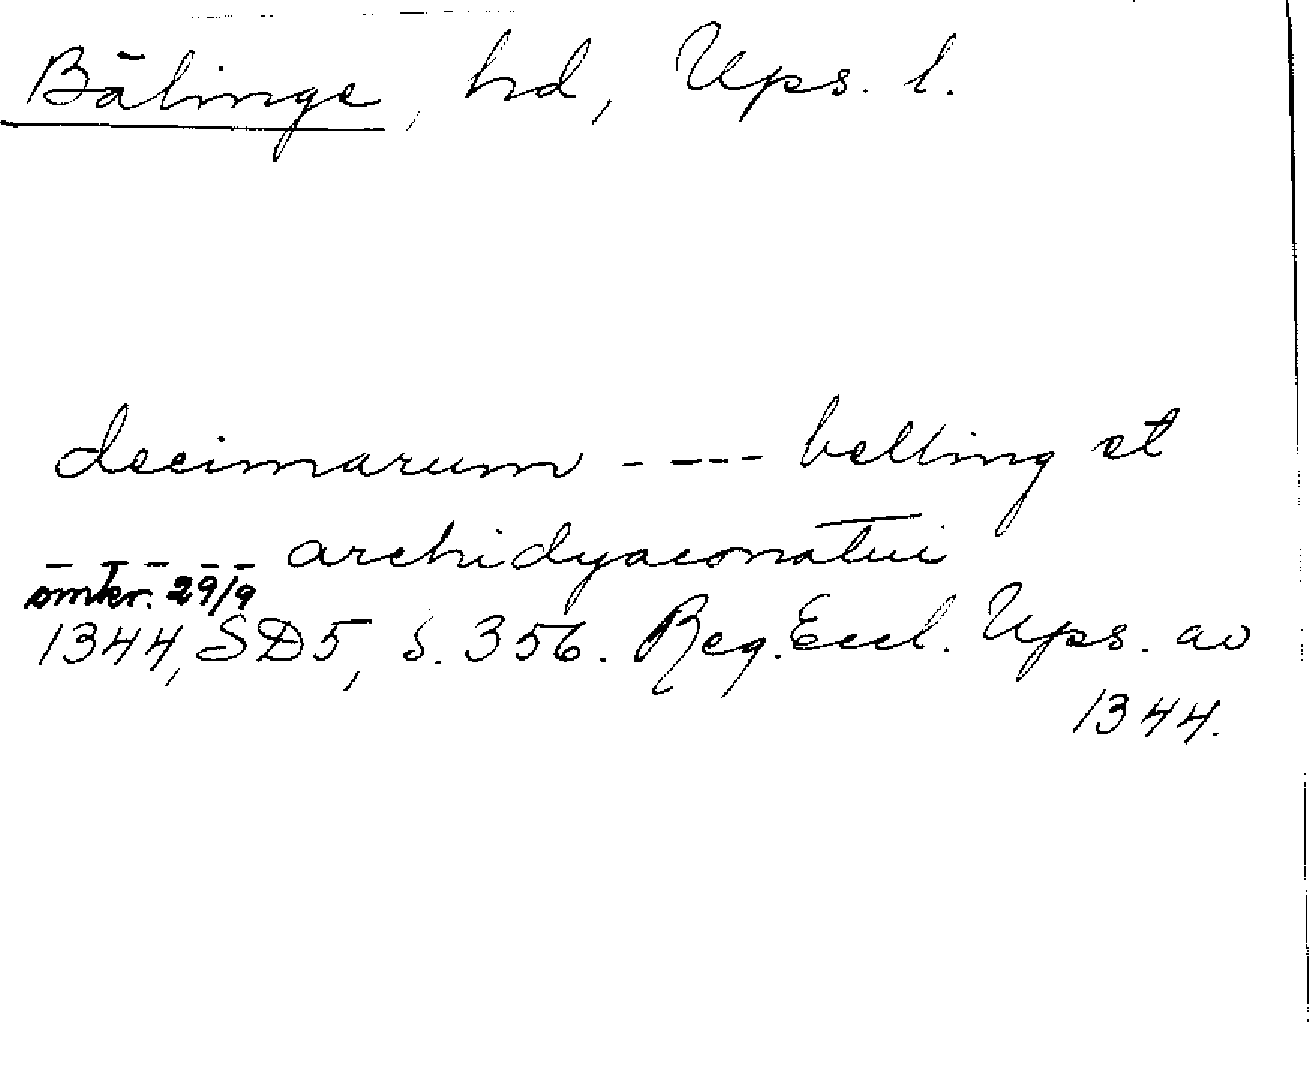 Bälinge, hd, Ups. l.
decimarum - - - - - belling et
- - - - - archidyaconatui
omkr. 29/9
1344, SD5, s. 356. Reg. Eccl. Ups. av
1344.